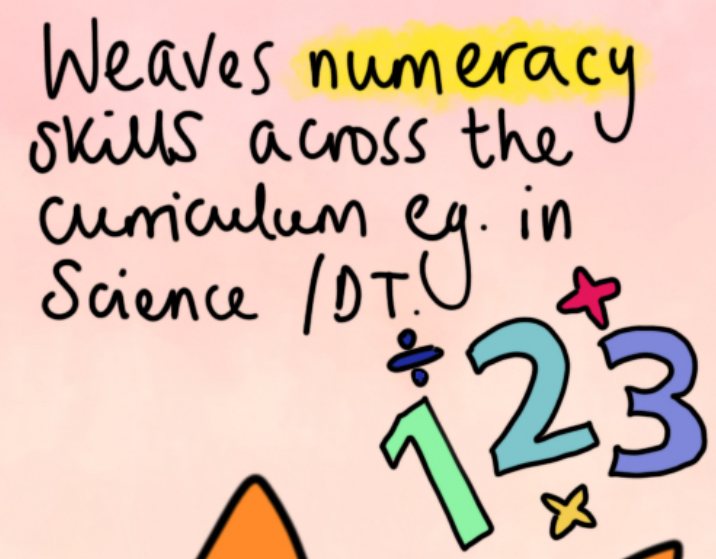 Weaves numeracy
skills across the
curriculum eg. in
Science /DT.
÷ 
1 2 3